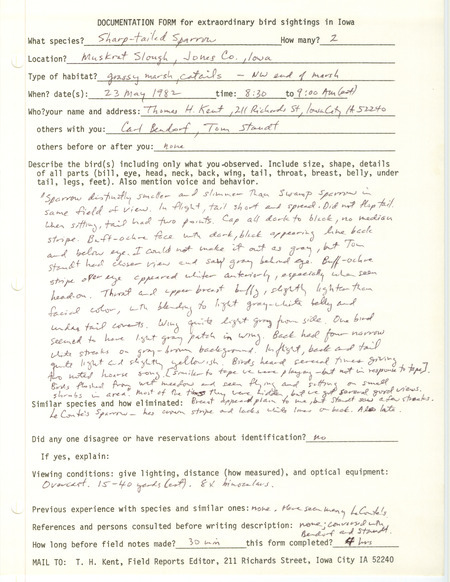 DOCUMENTATION FORM for extraordinary bird sightings in Iowa
What species? Sharp-tailed Sparrow How many? 2
Location? Muskrat Slough, Jones Co., Iowa
Type of habitat? grassy marsh, cattails - NW end of marsh
When? date(s): 23 May 1982 time: 8:30 to 9:00 AM (est)
Who?your name and address: Thomas H. Kent, 211 Richards St, Iowa City IA 52240
others with you: Carl Bendorf, Tom Staudt
others before or after you: none
Describe the bird(s) including only what you observed. Include size, shape, details
of all parts (bill, eye, head, neck, back, wing, tail, throat, breast, belly, under
tail, legs, feet). Also mention voice and behavior.
Sparrow distinctly smaller and slimmer than Swamp Sparrow in
same field of view. In flight, tail short and spread. Did not flap tail.
When sitting, tail had two points. Cap all dark to black, no median
stripe. Buff-ochre face with dark, black appearing line back
and below eye. I could not make it out as gray, but Tom
Staudt had closer view and said gray behind eye. Buff-ochre
stripe over eye appeared whiter anteriorly, especially when seen
head on. Throat and upper breast buffy, slightly lighter than
facial color, with blending to light gray-white belly and
under tail coverts. Wing quite light gray from side. One bird
seemed to have light gray patch in wing. Back had four narrow
white streaks on gray-brown background. In flight, back and tail
quite light and slightly yellowish. Birds heard several times giving
two noted hoarse song [similar to tape we were playing - but not in response to tape].
Birds flushed from wet meadow and seen flying and sitting on small
shrubs in area. Most of the time they were hidden, but we got several good views.
Breast appeared plain to me, but Staudt saw a few streaks.
Similar species and how eliminated:
LeConte's Sparrow - has crown stripe and lacks white lines on back. Also late.
Did any one disagree or have reservations about identification? no
If yes, explain:
Viewing conditions: give lighting, distance (how measured), and optical equipment:
Overcast. 15-40 yards (est). 8x binoculars.
Previous experience with species and similar ones: none. Have seen many LeConte's
References and persons consulted before writing description: none; conversed with
Bendorf and Staudt.
How long before field notes made? 30 min this form completed? 4 hrs
MAIL TO: T. H. Kent, Field Reports Editor, 211 Richards Street, Iowa City IA 52240